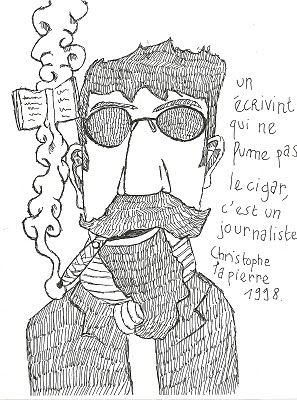 un
écrivint
qui ne
Pume pas
le cigar,
c'est un
journaliste
Christophe
lapierre
1998.